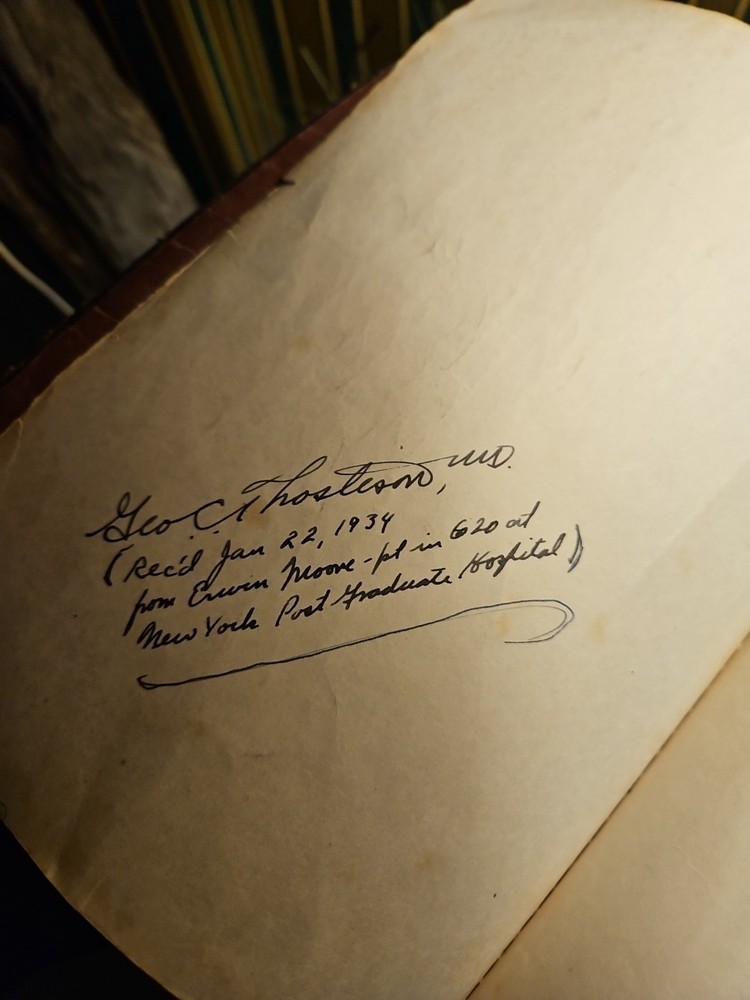 Geo. C. Thosteson, MD.
(Rec'd Jan 22, 1934
from Erwin Moore - pt in 620 at
New York Post Graduate Hospital)